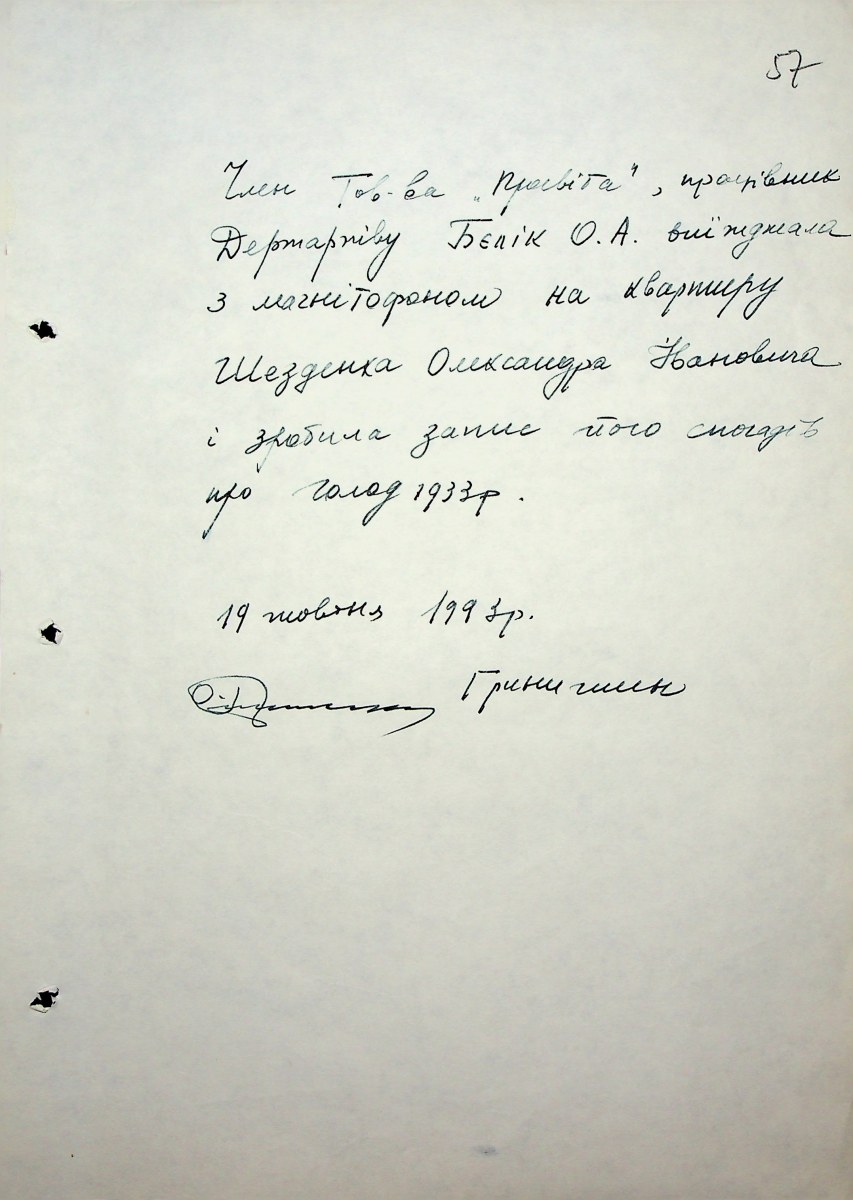 57
Член Тов-ва „Просвіта", працівник
Держархіву Бєлік О.А. виїжджала
з магнітофоном на квартиру
Шезденка Олександра Івановича
і зробила запис його спогадів
про голод 1933р.
19 жовтня 1993р.